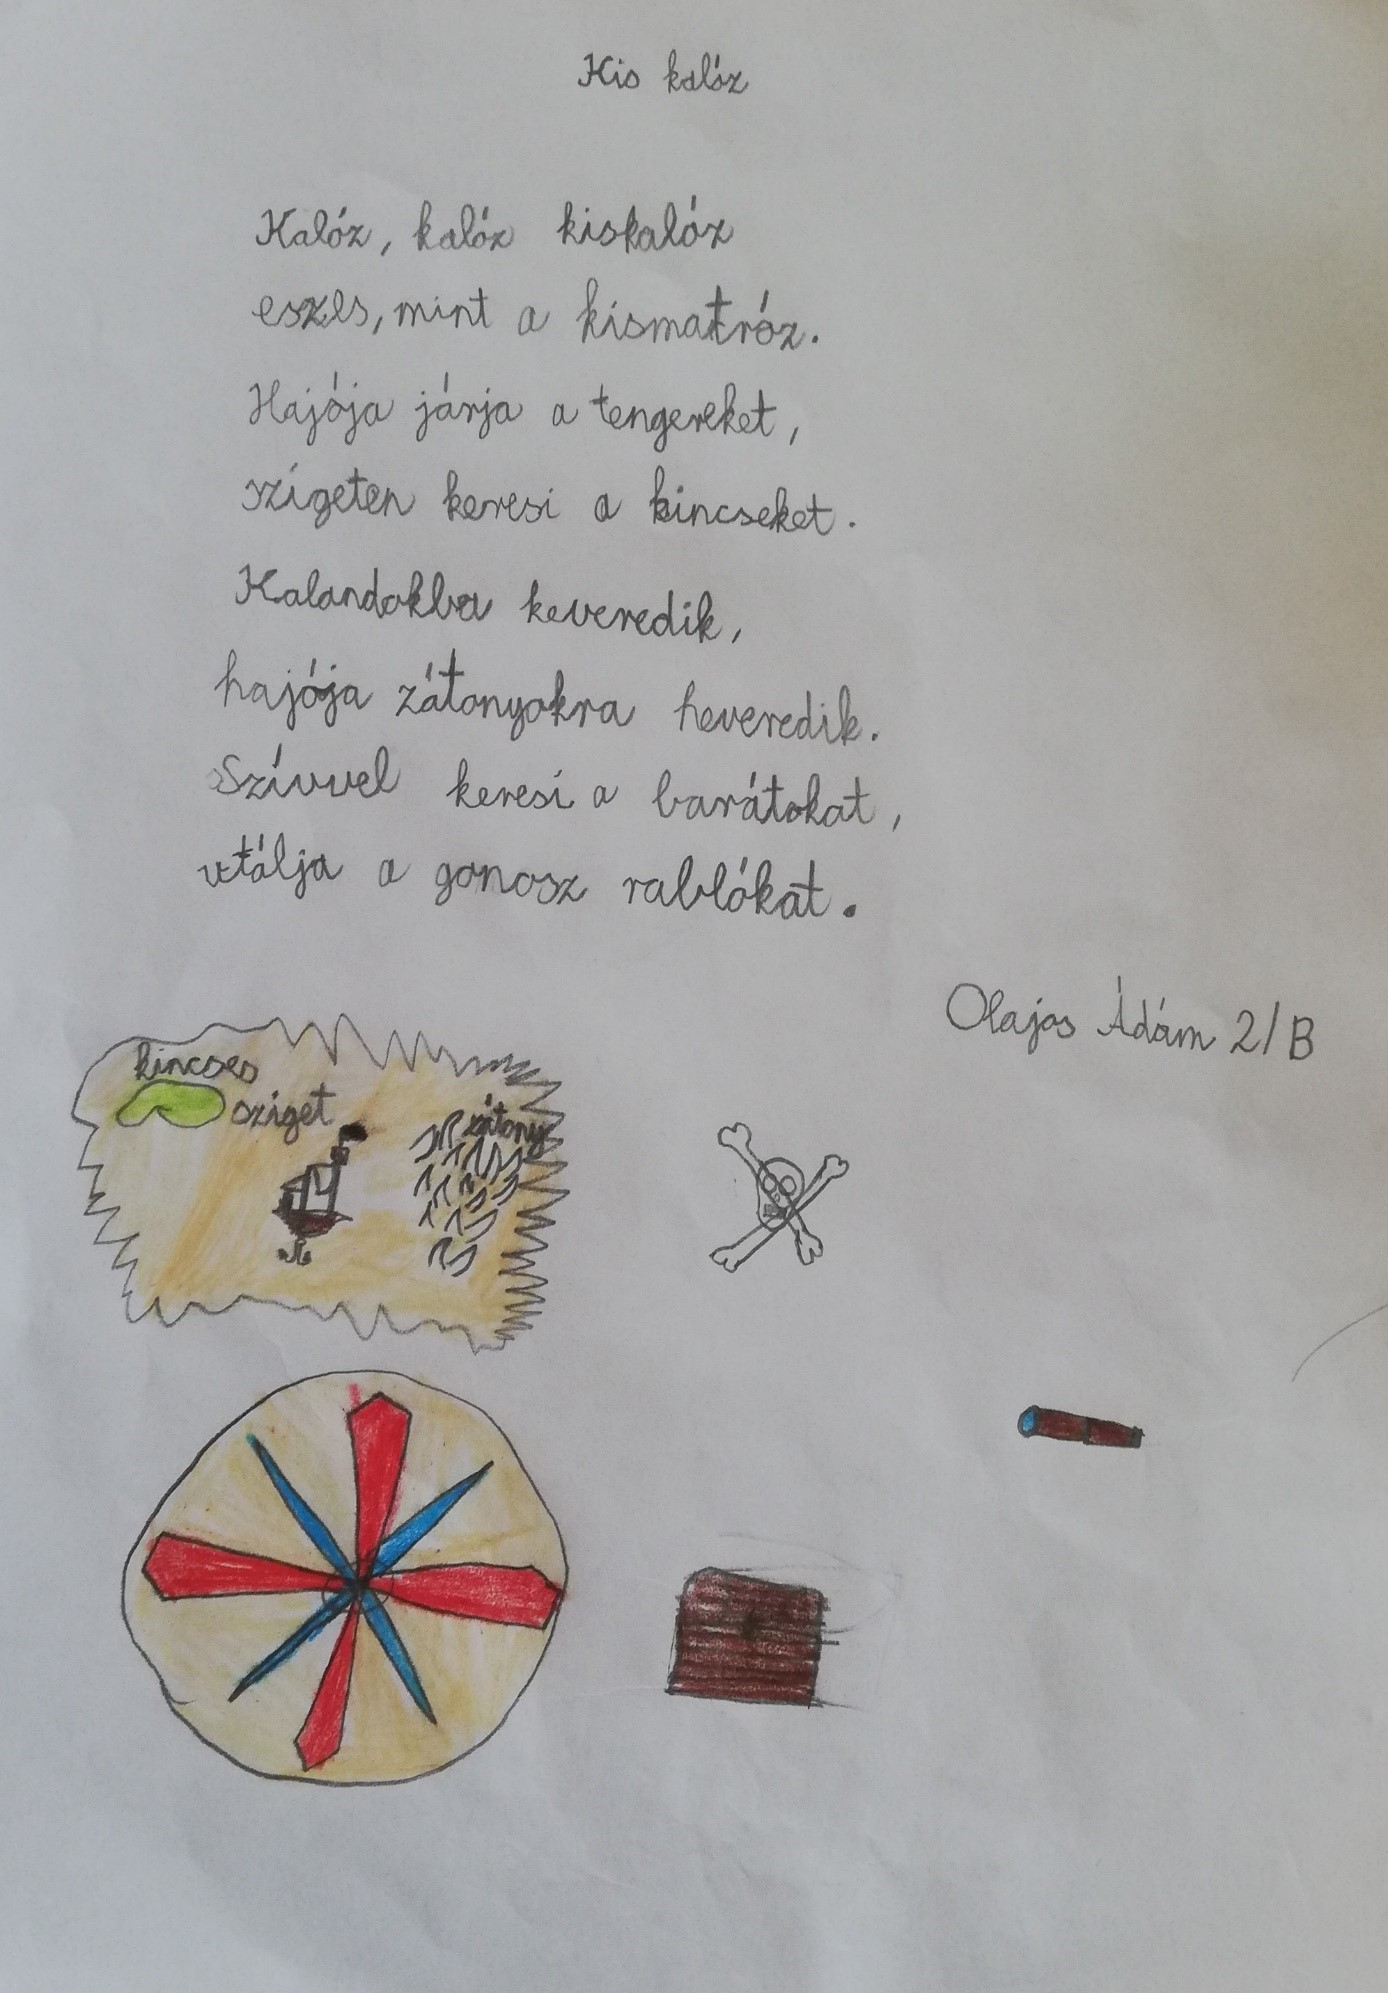 Kis kalóz
Kalóz, kalóz kiskalóz
eszes, mint a kismatróz.
Hajója járja a tengereket,
szigeten keresi a kincseket.
Kalandokba keveredik,
hajója zátonyokra heveredik.
Szívvel keresi a barátokat,
utálja a gonosz rablókat.
Olajos Ádám 2/B
kincses
sziget
zátony